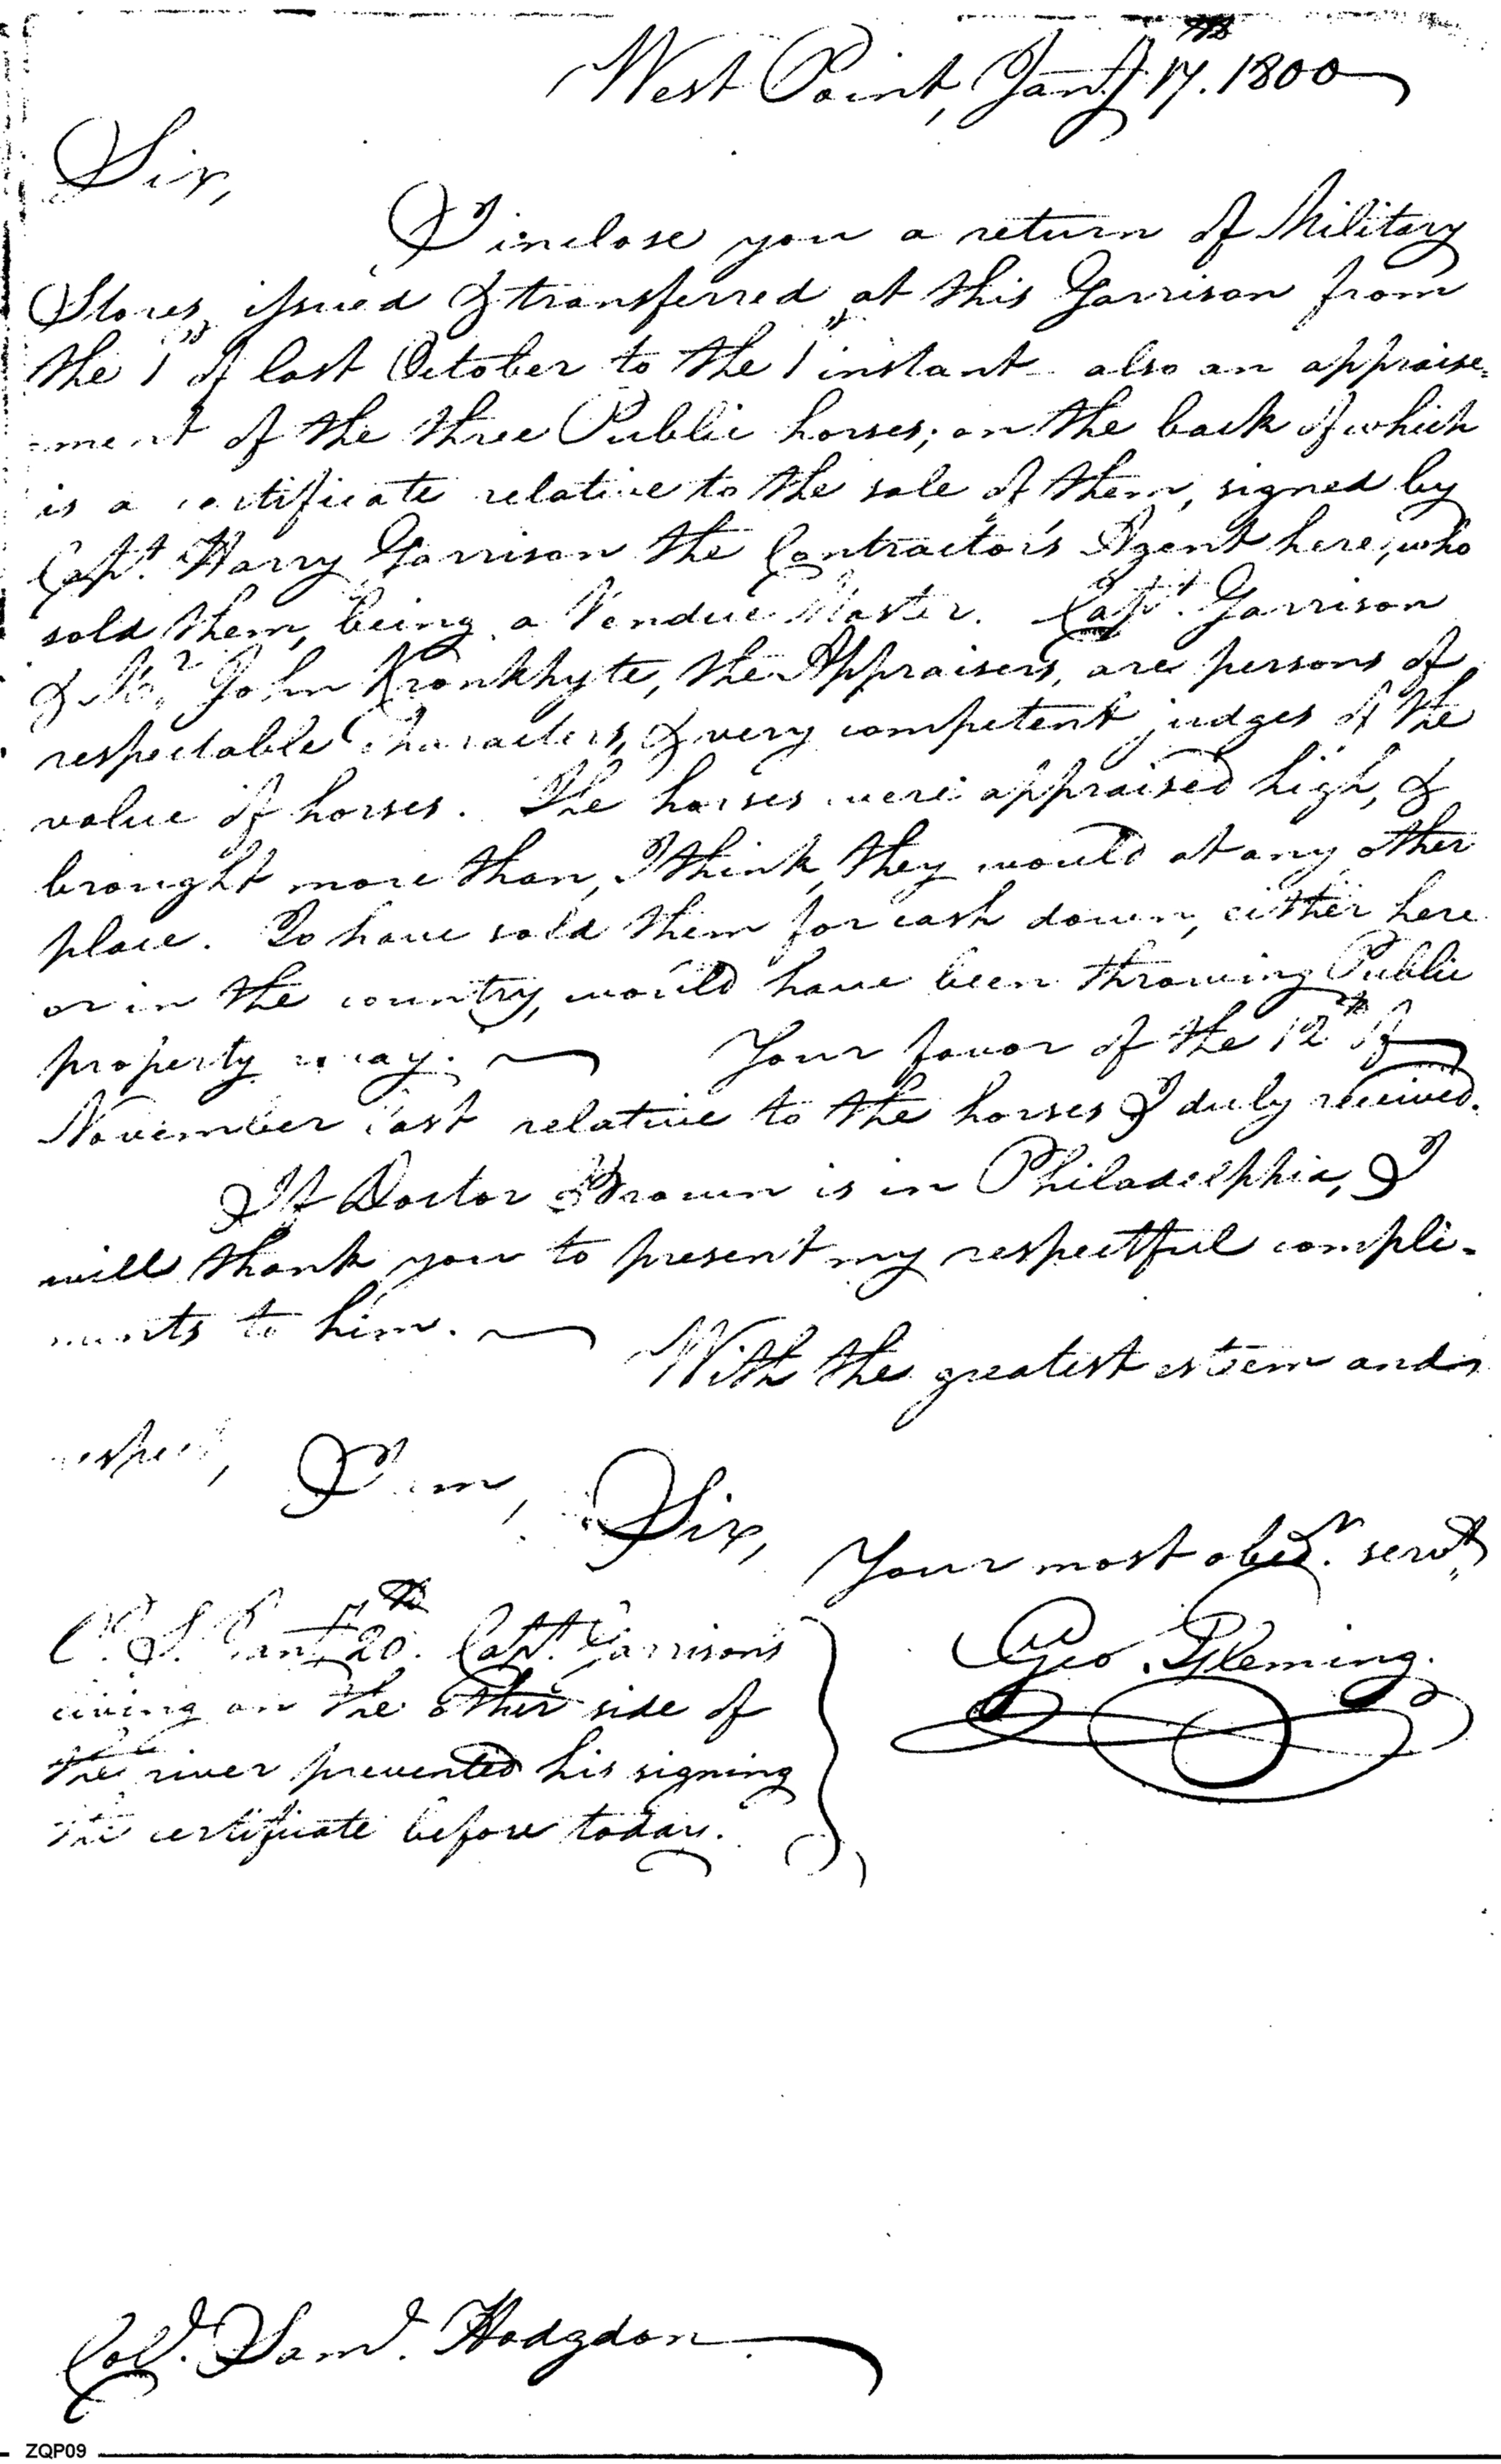 West Point, Jany. 17th. 1800
Sir,
I inclose you a return of Military
Stores, issued & transferred, at this Garrison from
the 1st of last October to the 1st instant also an appraise=
=ment of the three Public horses; on the back of which
is a certificate relative to the sale of them, signed by
Capt. Harry Garrison the Contractor's Agent here, who
sold them, being a Vendue Master. Capt. Garrison
& Mr. John Kronkhyte, the Appraisers, are persons of
respectable Characters, & very competent judges of the
value of horses. The horses were appraised high, &
brought more than, I think, they would at any other
place. To have sold them for cash down, either here
or in the country, would have been throwing Public
property away. Your favor of the 12th of
November last relative to the horses I duly received.
If Doctor Brown is in Philadelphia, I
will thank you to present my respectful compli-
ments to him. With the greatest esteem and
respect, I am, Sir, Your most obedt. servt.
P. S. Jany. 20th. Capt. Garrison's
living on the other side of
the river prevented his signing
the certificate before today.
Geo. Fleming.
Col. Saml. Hodgdon
ZQP09